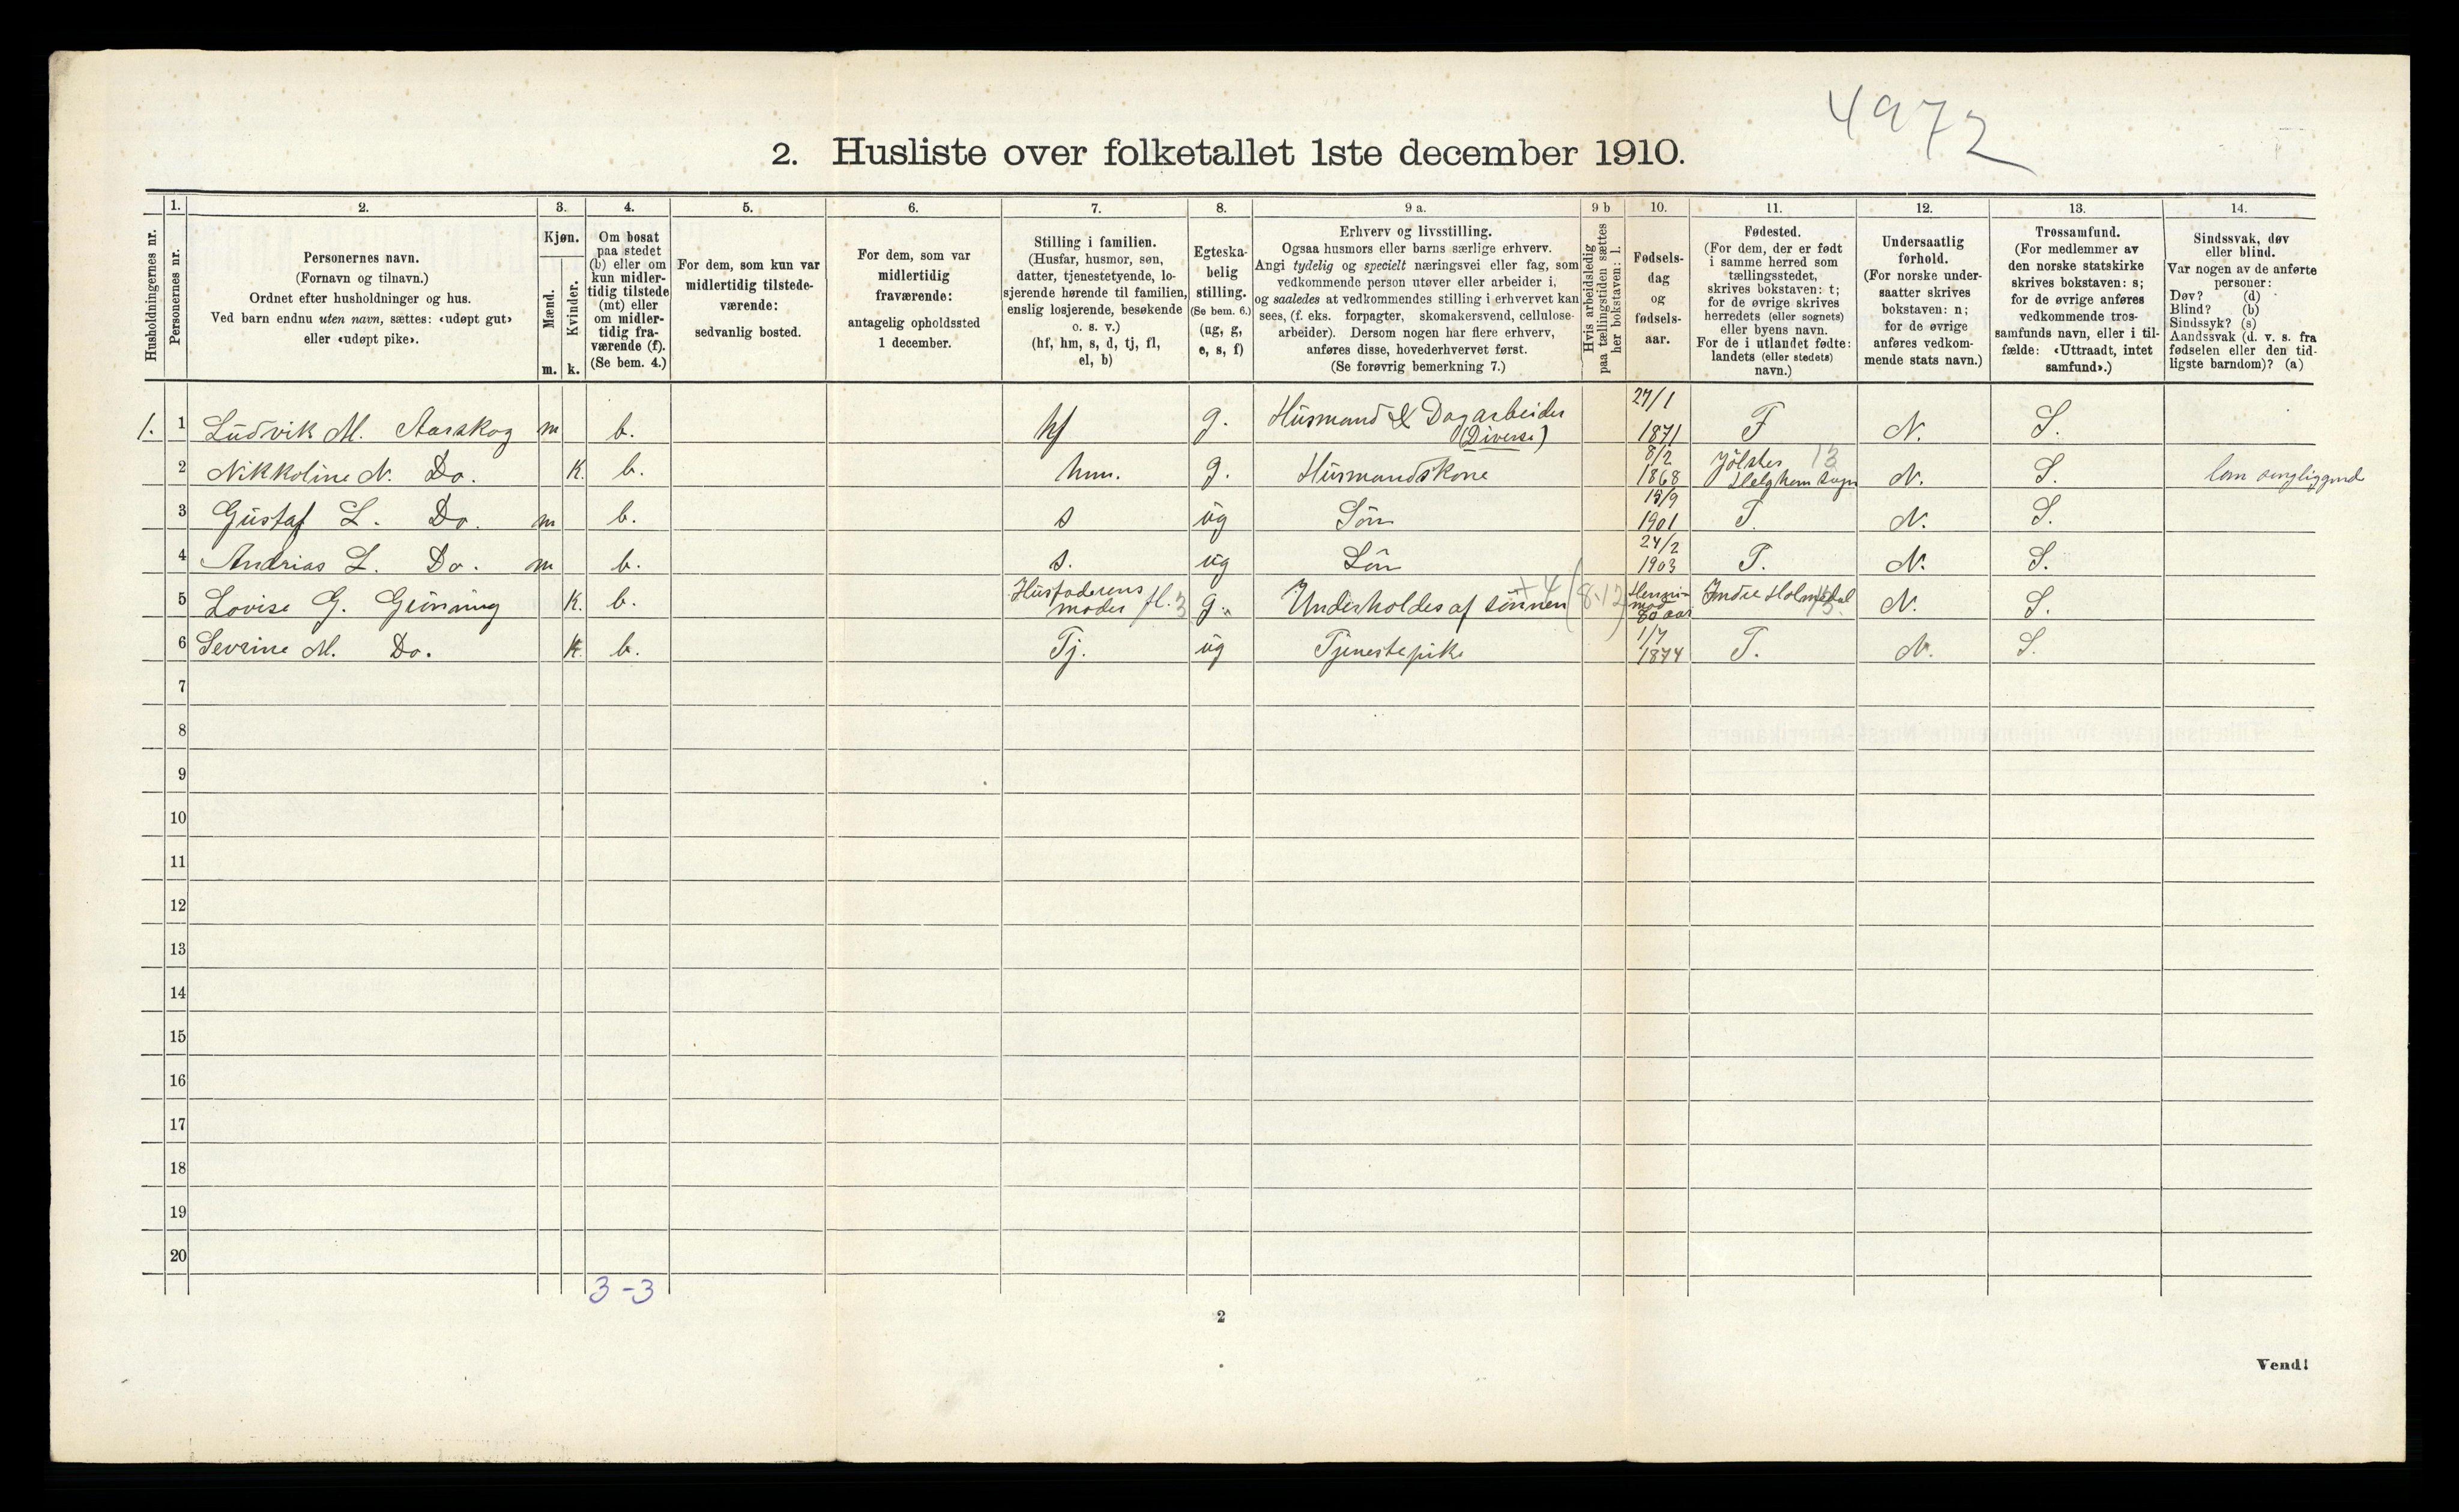 4972
2. Husliste over folketallet 1ste december 1910.
Husholdningernes nr.
1.
Personernes nr.
2.
Personernes navn.
(Fornavn og tilnavn.)
Ordnet efter husholdninger og hus.
Ved barn endnu uten navn, sættes: «udøpt gut»
eller «udøpt pike».
3.
Kjøn.
Mænd.
Kvinder.
m. k.
4.
Om bosat
paa stedet
(b) eller om
kun midler-
tidig tilstede
(mt) eller
om midler-
tidig fra-
værende (f).
(Se bem. 4.)
5.
For dem, som kun var
midlertidig tilstede-
værende:
sedvanlig bosted.
6.
For dem, som var
midlertidig
fraværende:
antagelig opholdssted
1 december.
7.
Stilling i familien.
(Husfar, husmor, søn,
datter, tjenestetyende, lo-
sjerende hørende til familien,
enslig losjerende, besøkende
o. s. v.)
(hf, hm, s, d, tj, fl,
el, b)
8.
Egteska-
belig
stilling.
(Se bem. 6.)
(ug, g,
e, s, f)
9 a.
Erhverv og livsstilling.
Ogsaa husmors eller barns særlige erhverv.
Angi tydelig og specielt næringsvei eller fag, som
vedkommende person utøver eller arbeider i,
og saaledes at vedkommendes stilling i erhvervet kan
sees, (f. eks. forpagter, skomakersvend, cellulose-
arbeider). Dersom nogen har flere erhverv,
anføres disse, hovederhvervet først.
(Se forøvrig bemerkning 7.)
9 b
Hvis arbeidsledig
paa tællingstiden sættes
her bokstaven: l.
10.
Fødsels-
dag
og
fødsels-
aar.
11.
Fødested.
(For dem, der er født
i samme herred som
tællingsstedet,
skrives bokstaven: t;
for de øvrige skrives
herredets (eller sognets)
eller byens navn.
For de i utlandet fødte:
landets (eller stedets)
navn.)
12.
Undersaatlig
forhold.
(For norske under-
saatter skrives
bokstaven: n;
for de øvrige
anføres vedkom-
mende stats navn.)
13.
Trossamfund.
(For medlemmer av
den norske statskirke
skrives bokstaven: s;
for de øvrige anføres
vedkommende tros-
samfunds navn, eller i til-
fælde: «Uttraadt, intet
samfund».)
14.
Sindssvak, døv
eller blind.
Var nogen av de anførte
personer:
Døv? (d)
Blind? (b)
Sindssyk? (s)
Aandssvak (d. v. s. fra
fødselen eller den tid-
ligste barndom)? (a)
1. 1 Ludvik M. Aarskog m b. hf g. Husmand & Dagarbeider (Diverse) 27/1 1871 T N. S.
2 Nikkoline N. Do. K. b. hm. g. Husmandskone 8/2 1868 Jölster Helghem Sogn 13 N. S. lam sengliggend
3 Gustaf L. Do. m b. s ug Sön 15/9 1901 T. N. S.
4 Andrias L. Do. m b. s. ug Sön 24/2 1903 T. N. S.
5 Lovise G. Grönning K. b. Husfaderens moder fl. 3 g. Underholdes af sönnen +4 (8-12) 80 aar Indre Holmedal 13. N. S.
6 Sevrine M. Do. K. b. Tj. ug Tjenestepike 1/7 1874 T. N. S.
7
8
9
10
11
12
13
14
15
16
17
18
19
20
3-3
2
Vend!